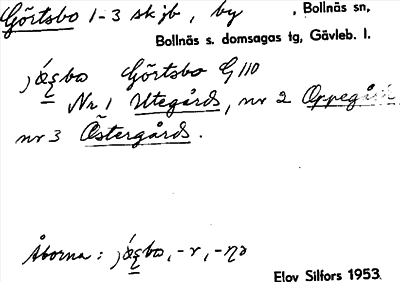 Görtsbo 1-3 skjb, by , Bollnäs sn,
Bollnäs s. domsagas tg, Gävleb. l.
Görtsbo G 110
Nr 1 Utegårds, nr 2 Oppegårds
nr 3 Östergårds.
Åborna:
Elov Silfors 1953.